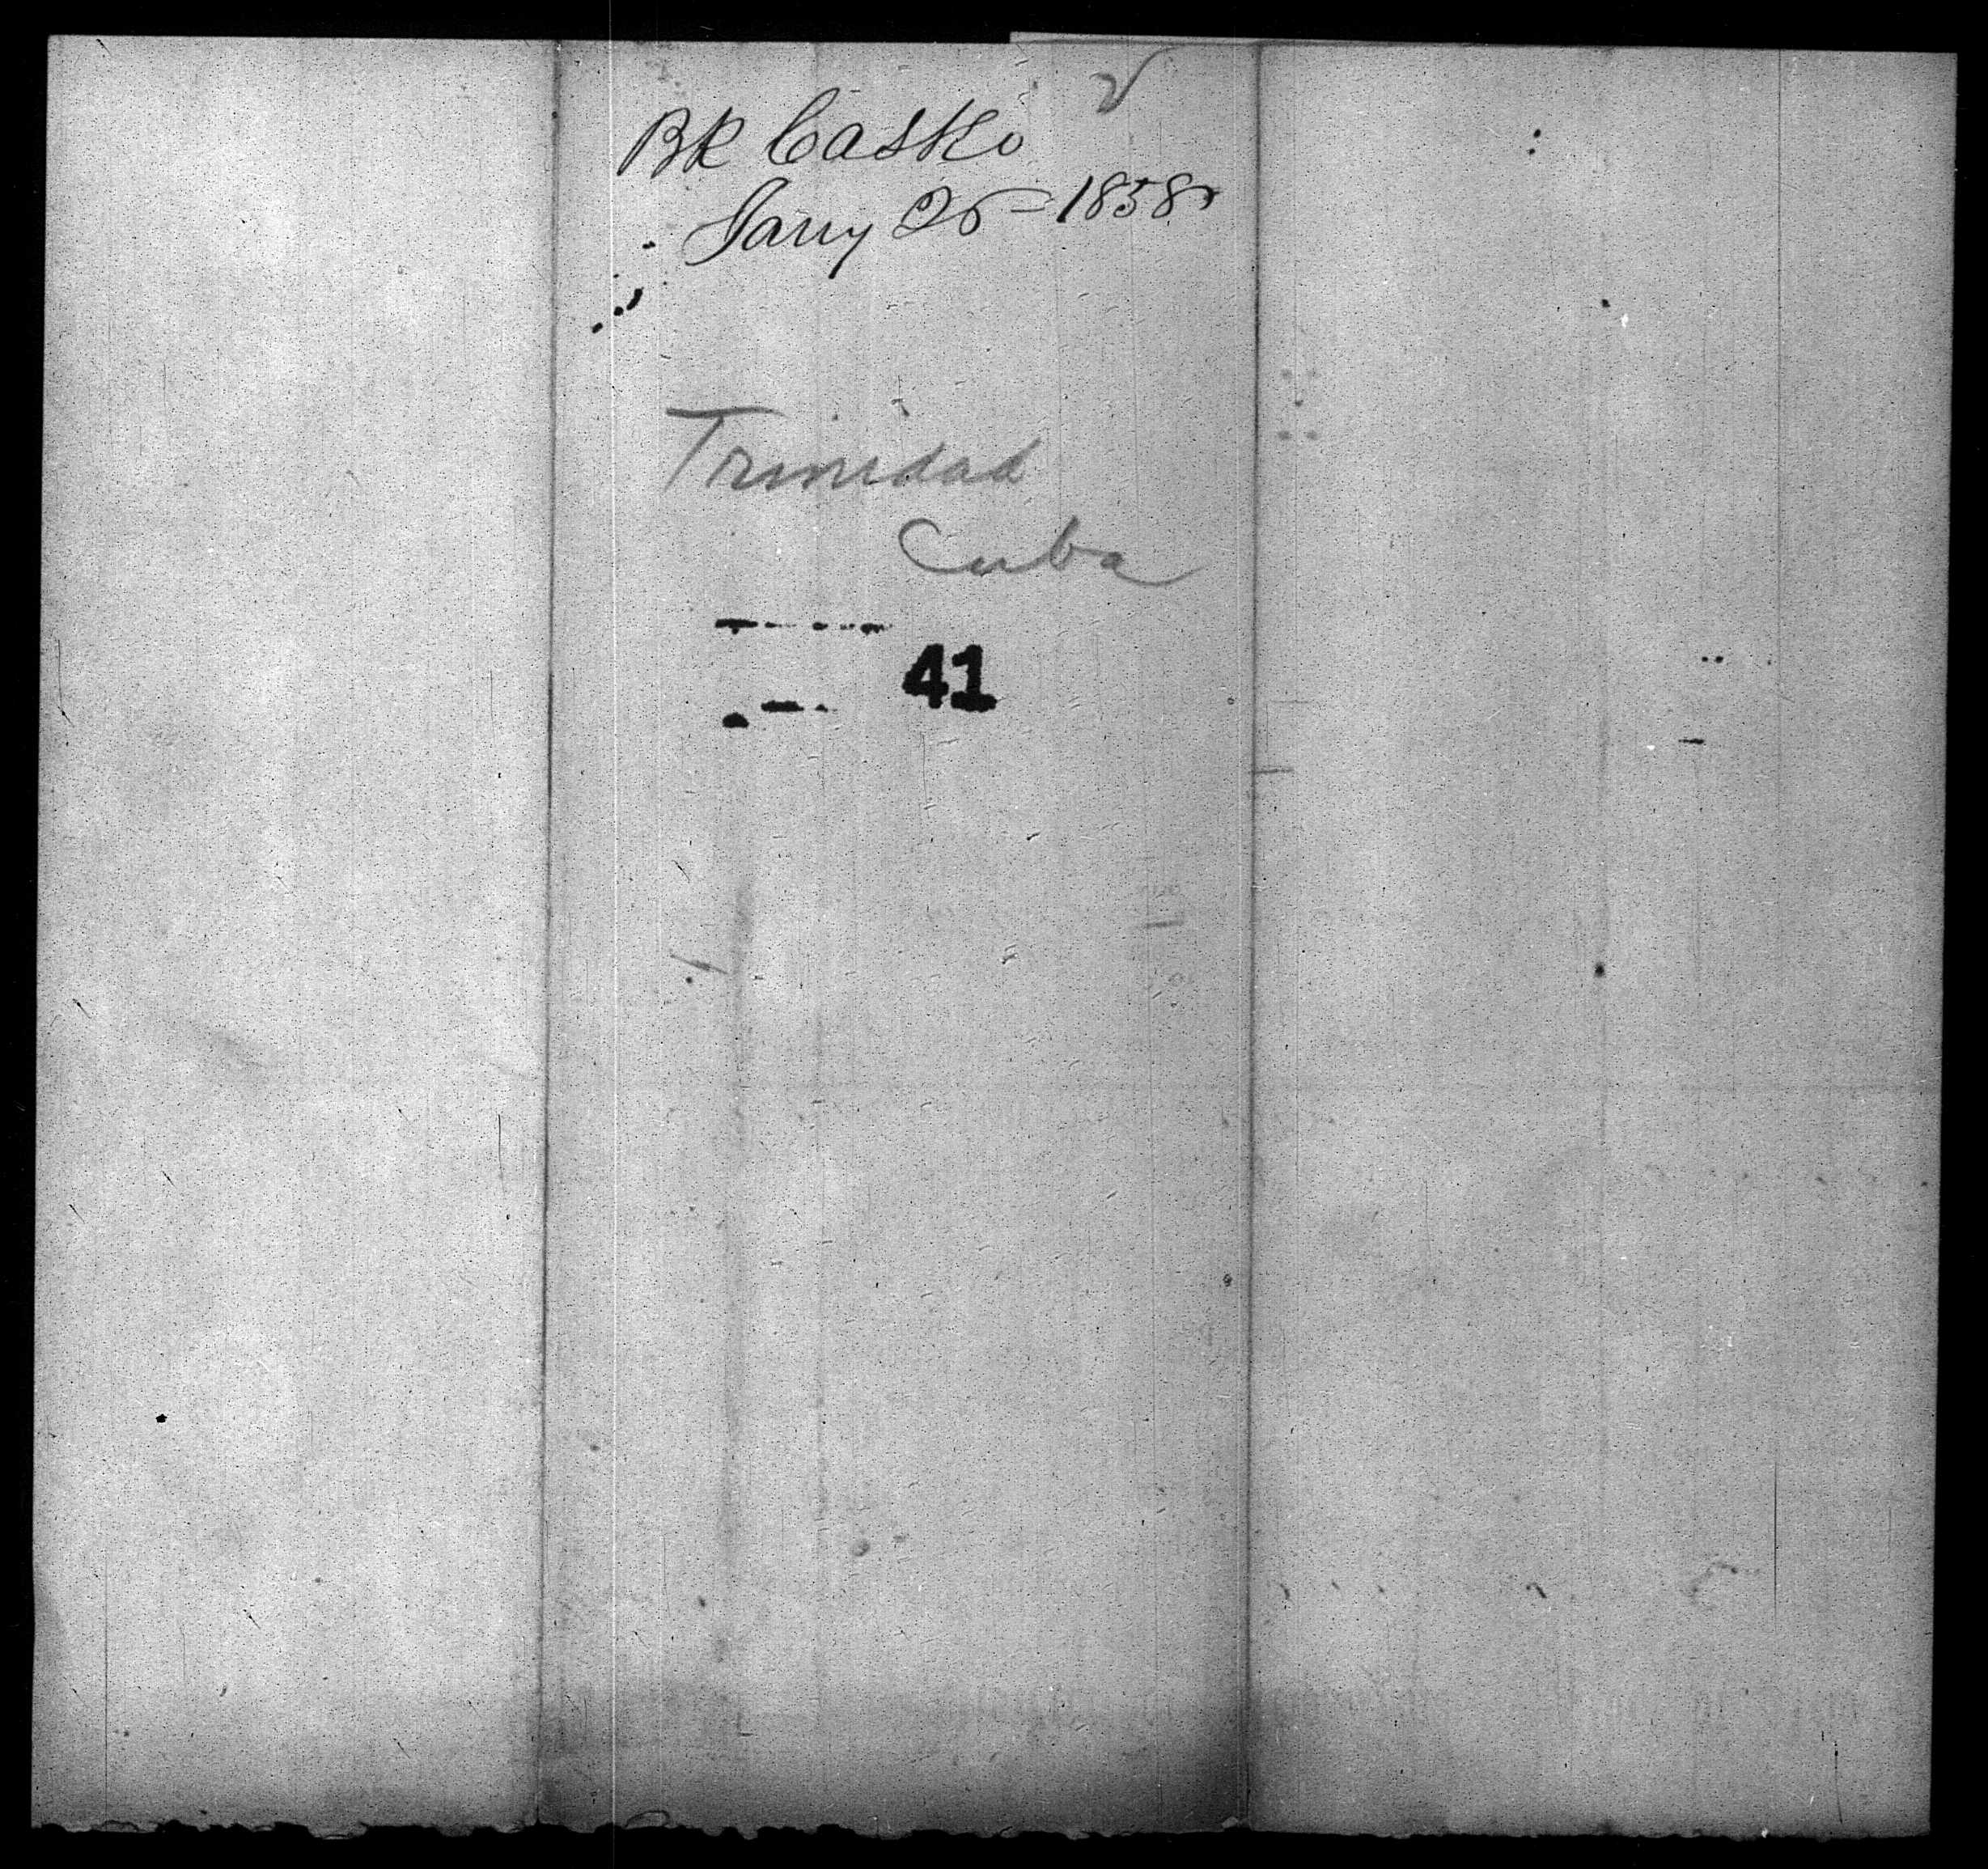 BR Casko
Jany 25 - 1858
Trinidad
Cuba
41